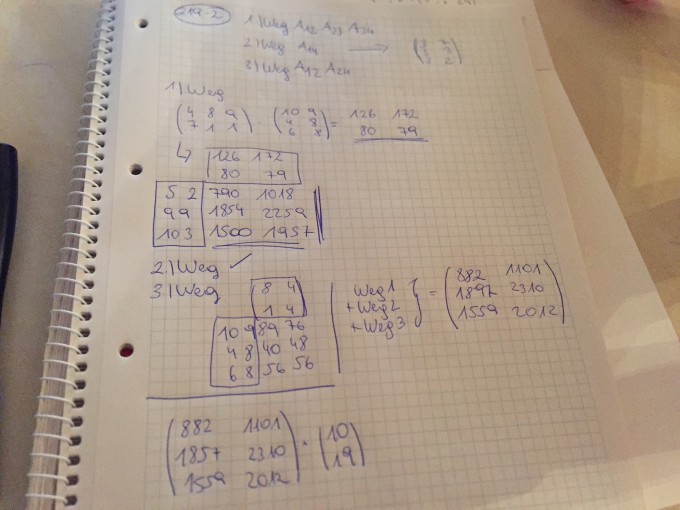 219-2
1) Weg A12 A23 A34
2) Weg A14
3) Weg A12 A24
1) Weg
(4 8 9) · (10 9) = 126 172
(7 1 1) (4 8) 80 79
(6 8)
↳ 126 172
80 79
5 2 790 1018
9 9 1854 2259
10 3 1500 1957
2.) Weg ✓
3.) Weg 8 4
1 4
10 9 89 76
4 8 40 48
6 8 56 56
Weg 1
+ Weg 2
+ Weg 3
= (882 1101)
(1897 2310)
(1559 2012)
(882 1101) · (10)
(1857 2310) (19)
(1559 2012)